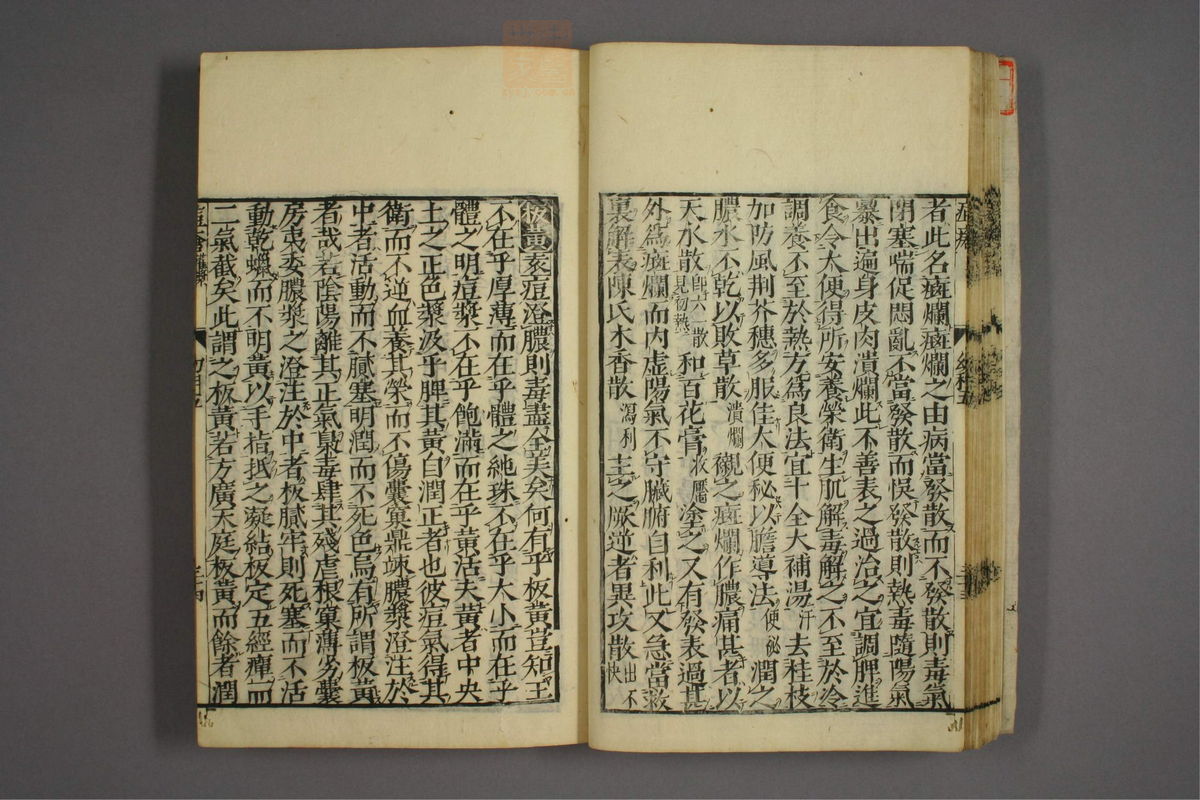 者此名癍爛癍爛之由病當發散而不發散則毒氣
閉塞喘促悶亂不當發散而悞發散則熱毒隨陽氣
暴出遍身皮肉潰爛此不善表之過治之宜調脾進
食令大便得所安養榮衛生肌解毒解之不至於冷
調養不至於熱方爲良法宜十全大補湯汗去桂枝
加防風荆芥穗多服佳大便秘以膽導法便秘潤之
膿水不乾以敗草散潰爛襯之癍爛作膿痛甚者以
天水散卽六一散見初熱和百花膏收靨塗之又有發表過甚
外爲癍爛而内虚陽氣不守臟腑自利此又急當救
裏解表陳氏木香散瀉利主之厥逆者異攻散出不快
板黄 痘澄膿則毒盡全美矣何有乎板黄豈知王
不在乎厚薄而在乎體之純珠不在乎大小而在乎
體之明痘漿不在乎飽滿而在乎黄活夫黄者中央
土之正色漿汲乎脾其黄白潤正者也彼痘氣得其
衛而不逆血養其榮而不傷囊窠鼎竦膿漿澄注於
中者活動而不膩塞明潤而不死色烏有所謂板黄
者哉若陰陽離其正氣梟毒肆其殘虐根窠薄劣囊
房夷委膿漿之澄注於中者板膩牢則死塞而不活
動乾蠟而不明黄以手指抵之凝結板定五經癉而
二氣截矣此謂之板黄若方廣天庭板黄而餘者潤